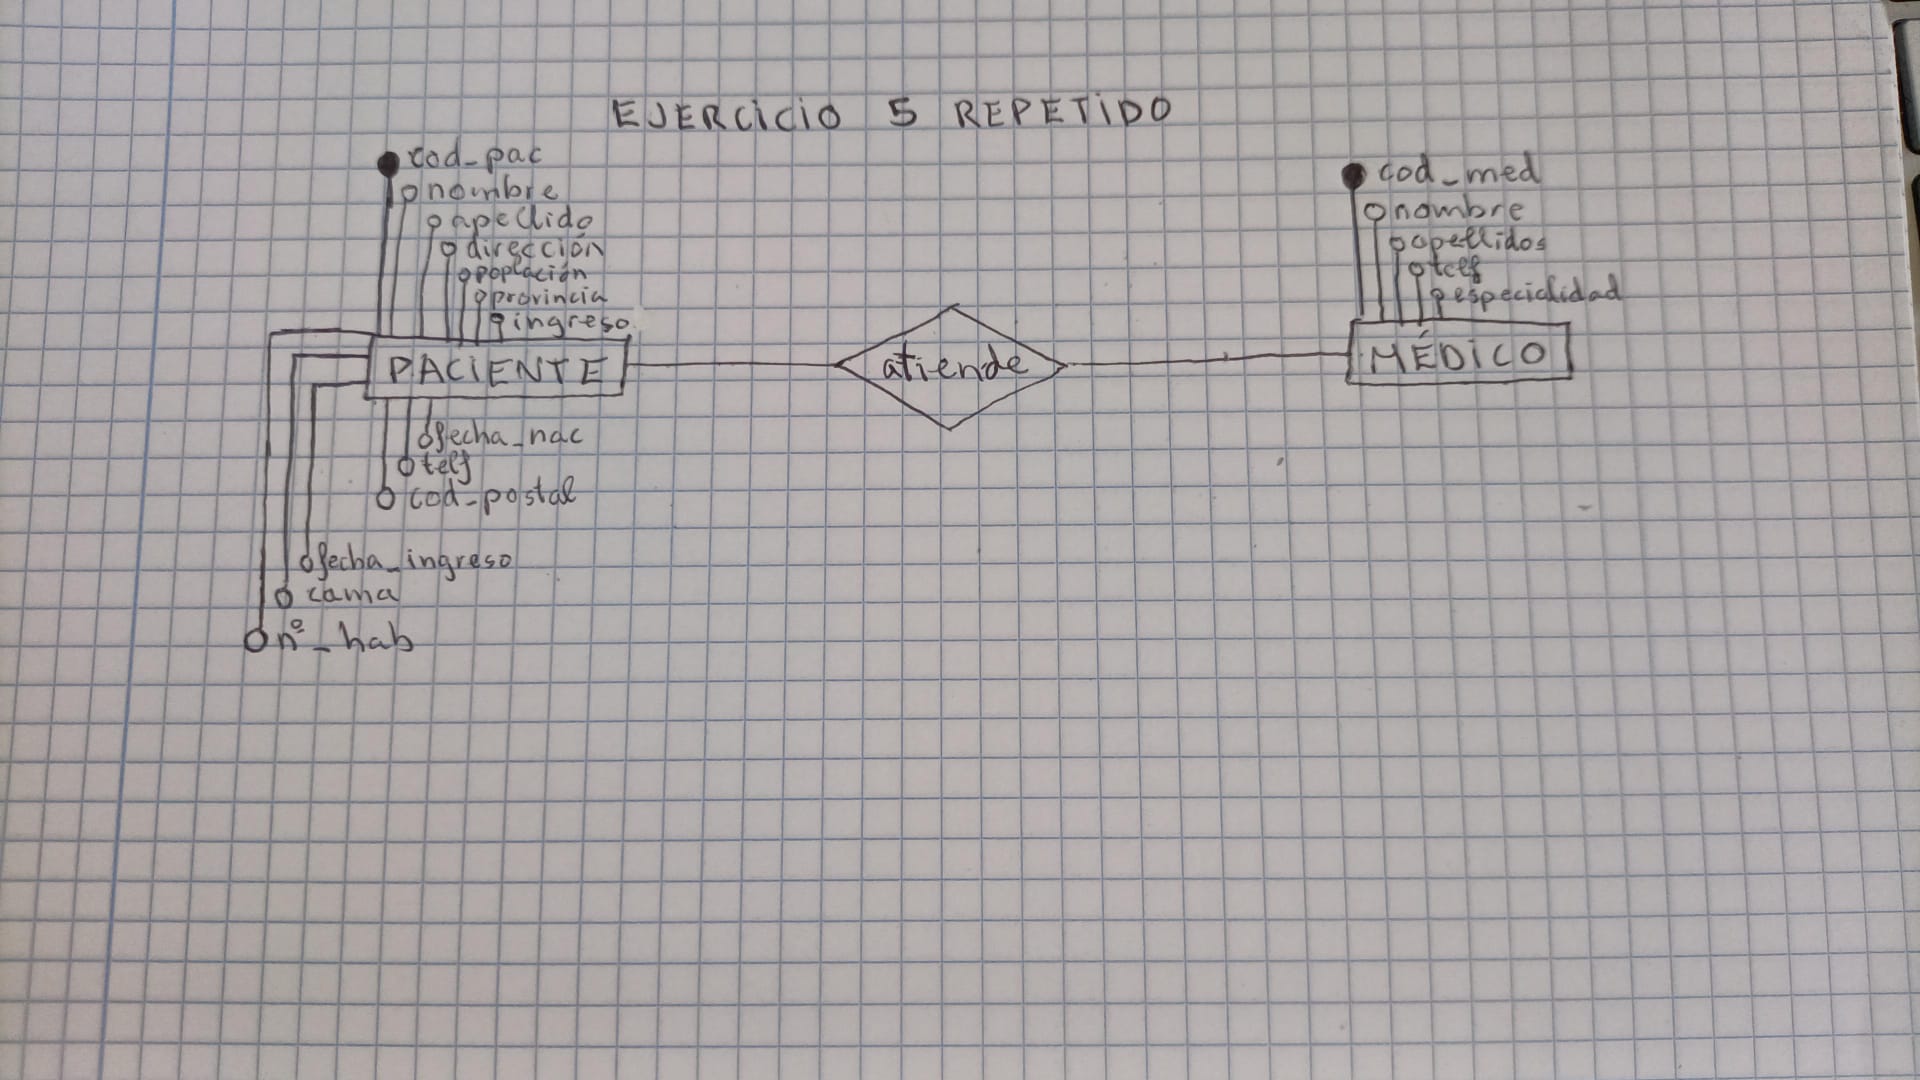 EJERCICIO 5 REPETIDO
cod_pac
nombre
apellido
dirección
poplación
provincia
ingreso
PACIENTE
fecha_nac
telf
cod_postal
fecha_ingreso
cama
nº_hab
atiende
cod_med
nombre
apellidos
telf
especialidad
MÉDICO